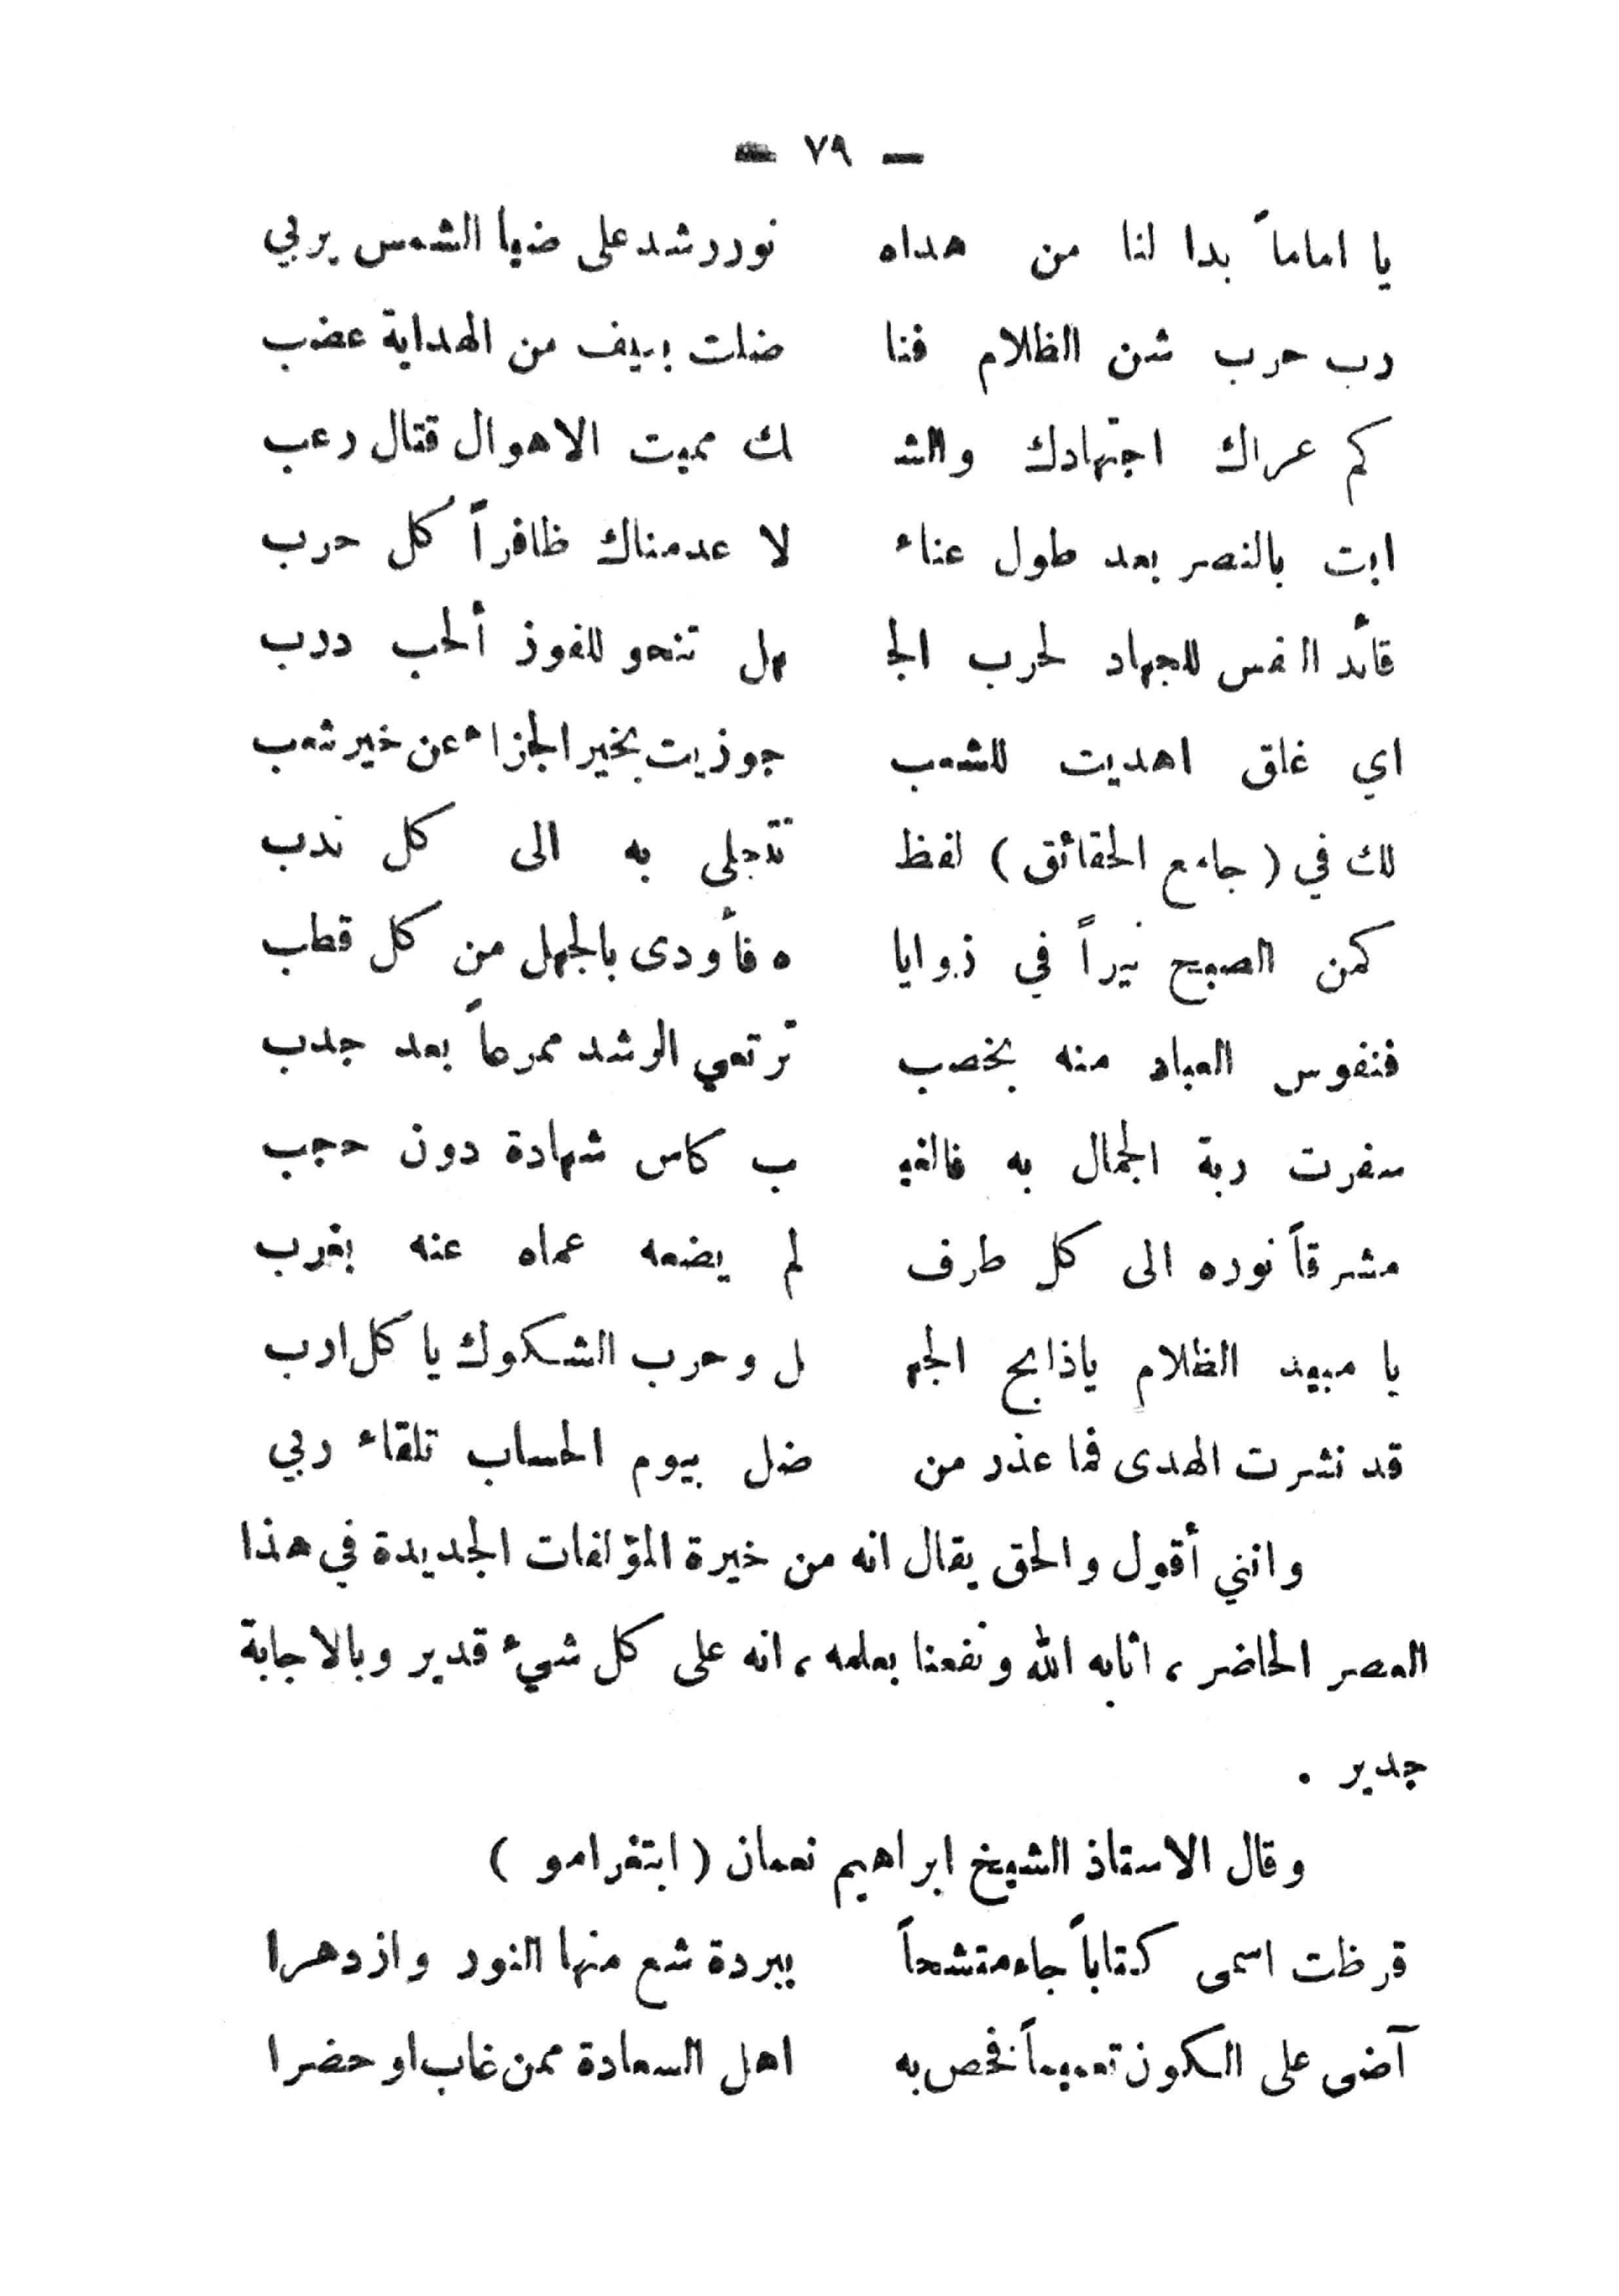 — ٧٩ —
يا اماماً بدا لنا من هداه نور رشد على ضيا الشمس يربي
رب حرب شن الظلام فنا ضلت بسيف من الهداية عضب
كم عراك اجتهادك والش ك مميت الاهوال قتال رعب
ابت بالنصر بعد طول عناء لا عدمناك ظافراً كل حرب
قائد النفس للجهاد لحرب الج هل تنحو للفوز ألحب درب
اي غلق اهديت للشعب جوزيت بخير الجزاء عن خير شعب
لك في (جامع الحقائق) لفظ تتجلى به الى كل ندب
كمن الصبح نيراً في زوايا ه فأودى بالجهل من كل قطب
فنفوس العباد منه بخصب ترتعي الرشد ممرعاً بعد جدب
سفرت ربة الجمال به فالغي ب كاس شهادة دون حجب
مشرقاً نوره الى كل طرف لم يضعه عماه عنه بغرب
يا مبيد الظلام ياذابح الجه ل وحرب الشكوك يا كل ارب
قد نشرت الهدى فما عذر من ضل بيوم الحساب تلقاء ربي
وانني أقول والحق يقال انه من خيرة المؤلفات الجديدة في هذا
العصر الحاضر، اثابه الله ونفعنا بعلمه، انه على كل شيء قدير وبالاجابة
جدير .
وقال الاستاذ الشيخ ابراهيم نعمان (ابتغرامو)
قرظت اسمى كتاباً جاء متشحاً ببردة شع منها النور وازدهرا
آضى على الكون تعميماً فخص به اهل السعادة ممن غاب او حضرا